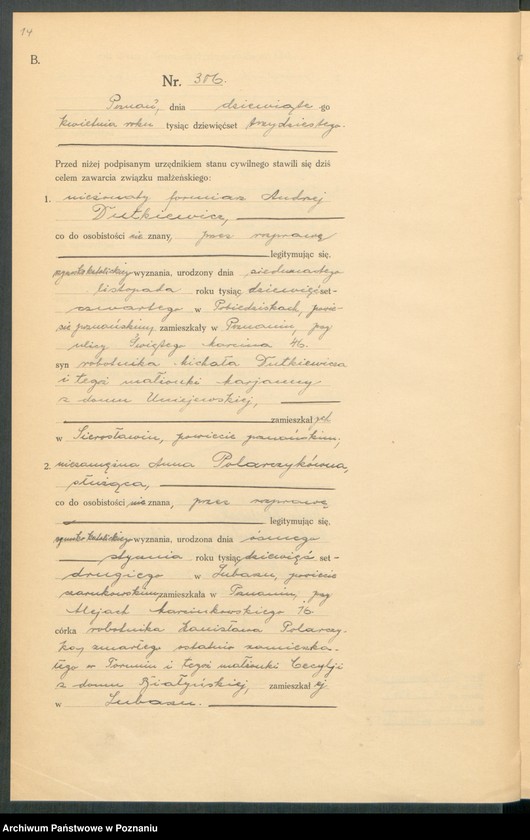 14
B.
Nr. 306.
Poznań, dnia dziewiąte-go
kwietnia roku tysiąc dziewięćset trzydziestego.
Przed niżej podpisanym urzędnikiem stanu cywilnego stawili się dziś
celem zawarcia związku małżeńskiego:
1. nieżonaty forniarz Andrzej
Dutkiewicz,
co do osobistości nie znany, przez rozprawę
legitymując się.
rzymskokatolickiego wyznania, urodzony dnia siedemnastego
listopada roku tysiąc dziewięćset-
czwartego w Pobiedziskach, powie-
cie poznańskim, zamieszkały w Poznaniu, przy
ulicy Świętego Marcina 46.
syn robotnika Michała Dutkiewicza
i tegoż małżonki Marjanny
z domu Umiejewskiej,
zamieszkał ych
w Sierosławiu, powiecie poznańskim;
2. niezamężna Anna Polarczykówna,
służąca,
co do osobistości nie znana, przez rozprawę
legitymując się.
rzymskokatolickiego wyznania, urodzona dnia ósmego
stycznia roku tysiąc dziewięć set-
drugiego w Lubaszu, powiecie
czarnkowskim, zamieszkała w Poznaniu, przy
Alejach Marcinkowskiego 16.
córka robotnika Stanisława Polarczy-
ka, zmarłego ostatnio zamieszka-
łego w Toruniu i tegoż małżonki Cecylji
z domu Białyńskiej, zamieszkał ej
w Lubaszu.
Archiwum Państwowe w Poznaniu